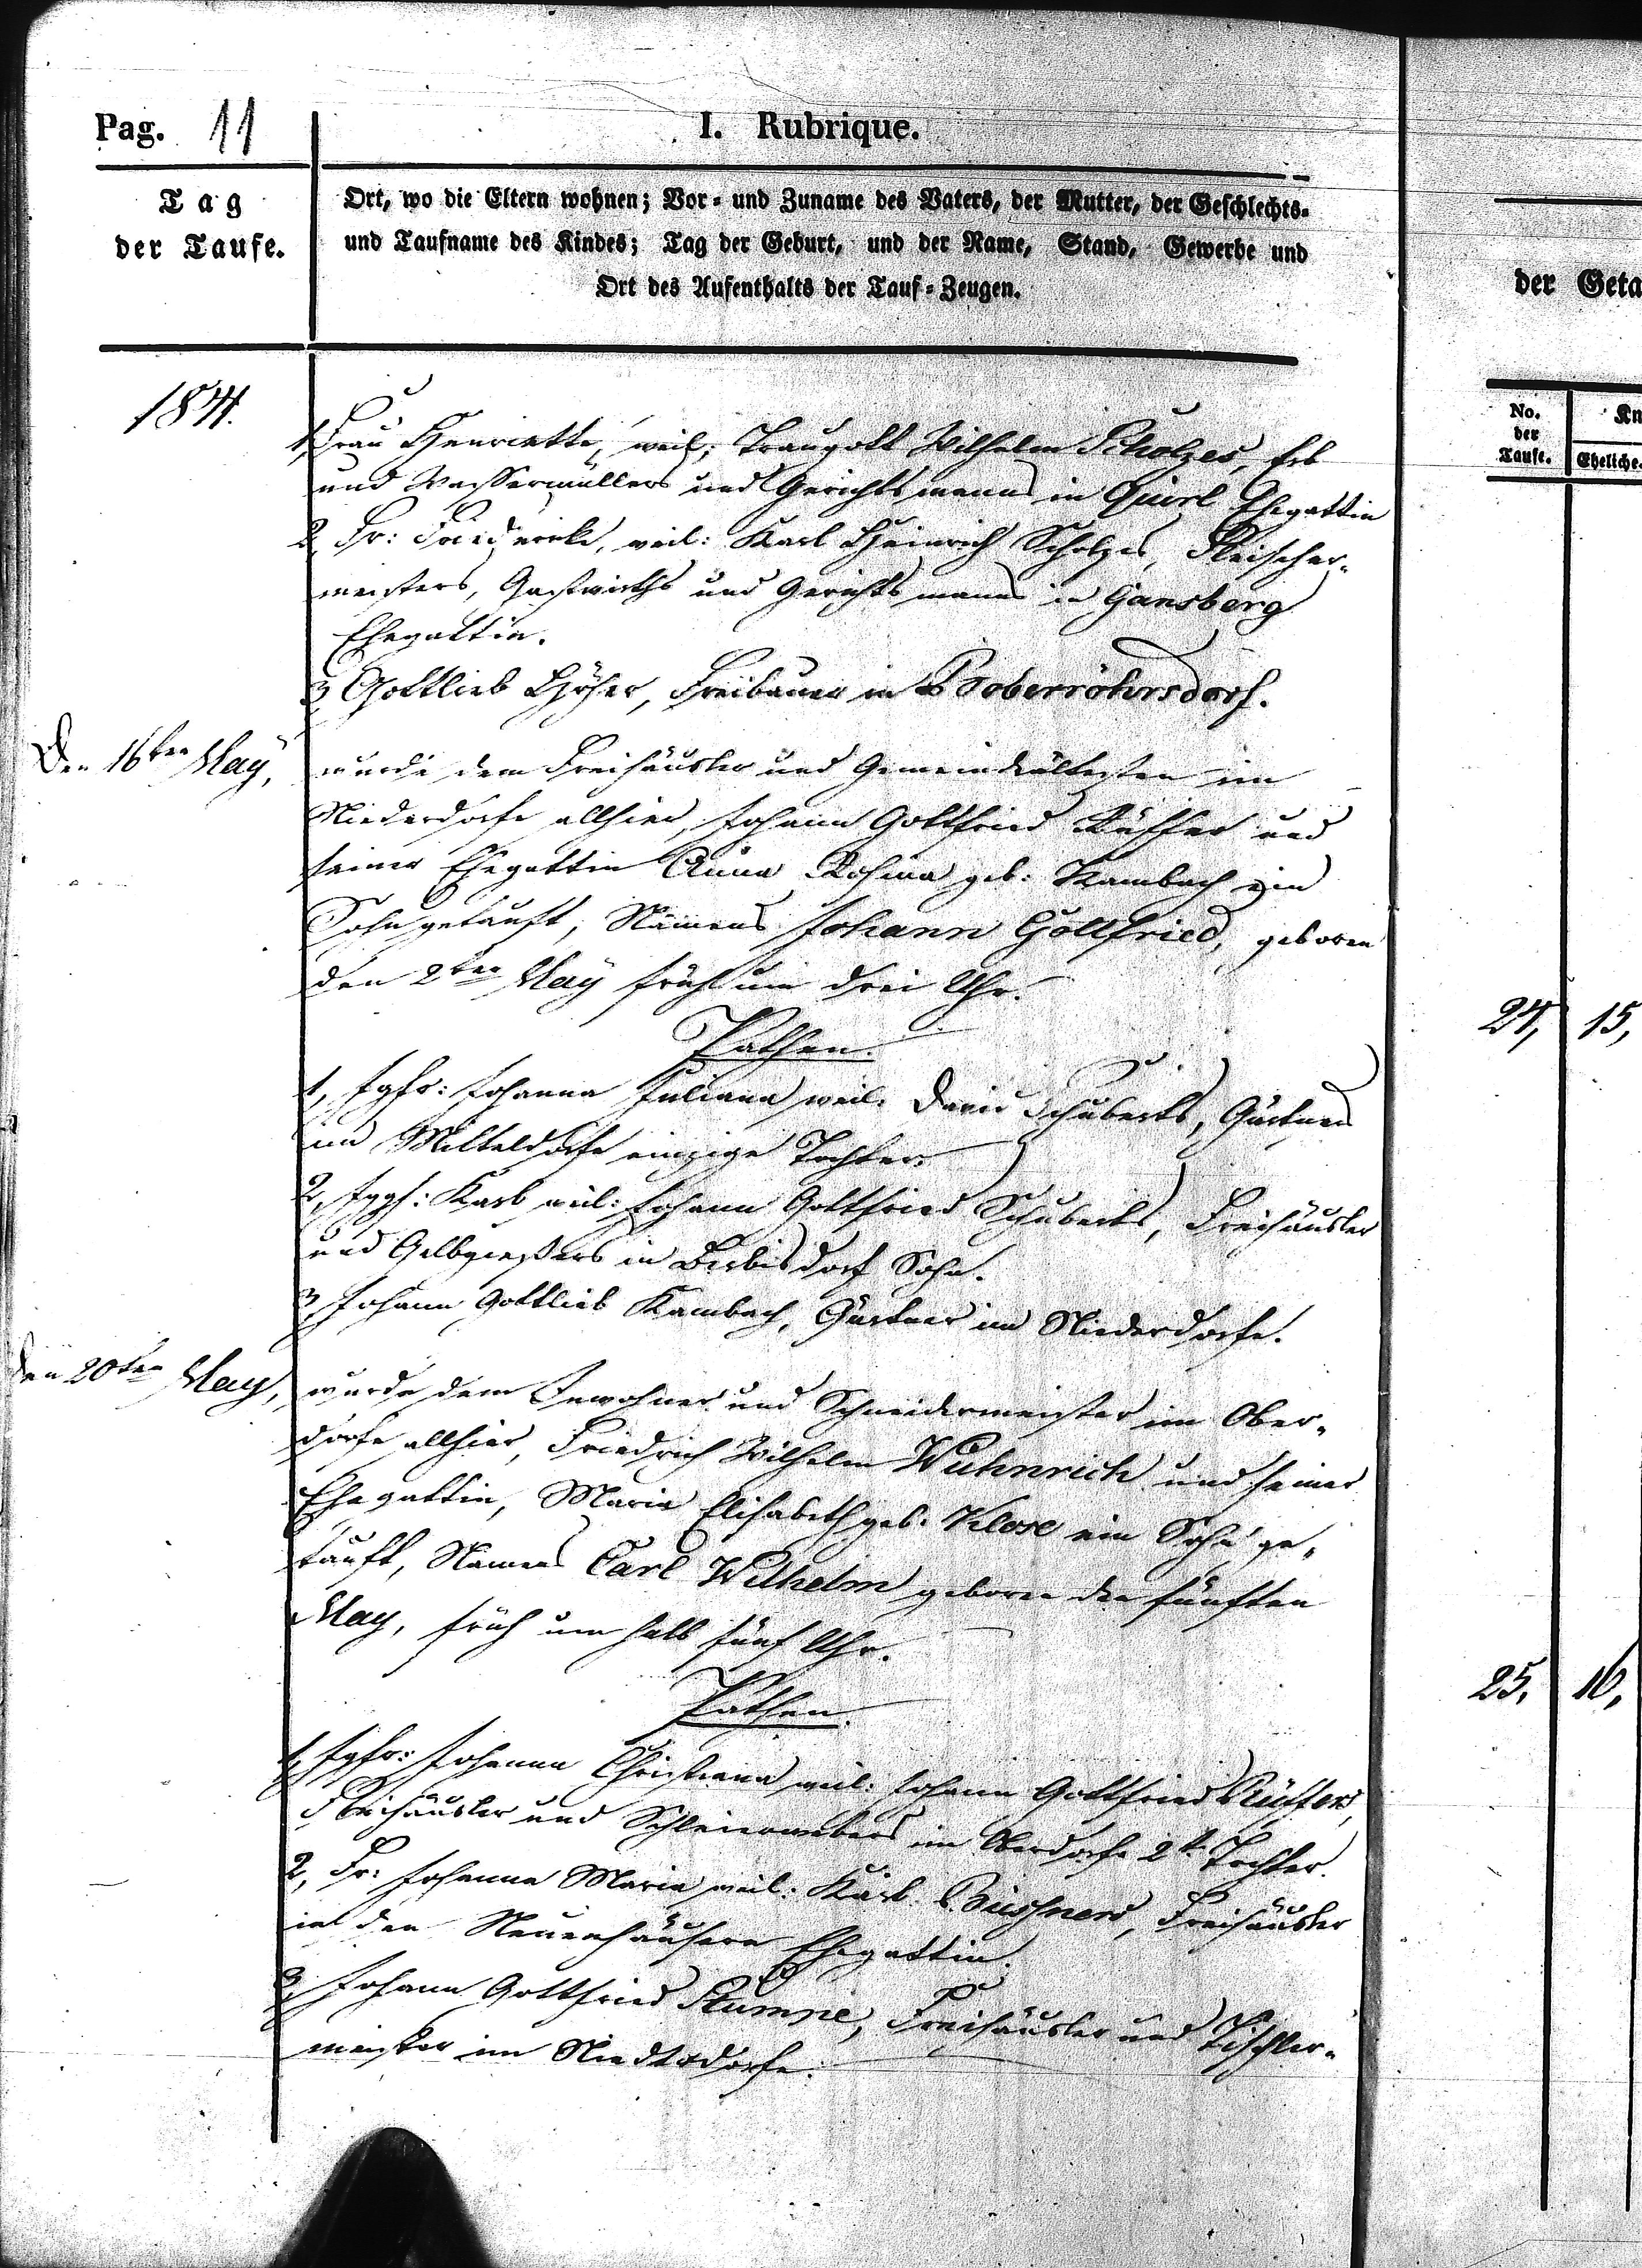 Pag. 11
I. Rubrique.
Tag
der Taufe.
Ort, wo die Eltern wohnen; Vor- und Zuname des Vaters, der Mutter, der Geschlechts-
und Taufname des Kindes; Tag der Geburt, und der Name, Stand, Gewerbe und
Ort des Aufenthalts der Tauf-Zeugen.
der Geta
No.
der
Taufe.
Kn
Eheliche.
1, Frau Henriette, weil: Traugott Wilhelm Scholzes, Erb
und Wassermüllers und Gerichtsmanns in Quirl Ehegattin
2, Fr: Friedericke, weil: Karl Heinrich Scholzes, Fleischer-
meisters, Gastwirths und Gerichtsmanns in Gansberg
Ehegattin.
3, Gottlieb Höher, Freibauer in Boberröhrsdorf.
Den 16ten May,
wurde dem Freihäusler und Gemeindeältesten im
Niederdorfe allhier, Johann Gottfried Rüffer und
seiner Ehegattin Anna Rosina geb: Kambach ein
Sohn getauft, Namens Johann Gottfried, geboren
den 2ten May früh um drei Uhr.
24, 15,
Pathen.
1, Jgfr: Johanna Juliana weil: David Schuberts, Gärtners
im Mitteldorfe einzige Tochter.
2, Jggs: Karl weil: Johann Gottfried Schuberts, Freihäusler
und Gelbgießers in Berbisdorf Sohn.
3, Johann Gottlieb Kambach, Gärtner im Niederdorfe.
den 20ten May,
wurde dem Inwohner und Schneidermeister im Ober-
dorfe allhier, Friedrich Wilhelm Wuhnrich und seiner
Ehegattin, Maria Elisabeth geb. Klose ein Sohn ge-
tauft, Namens Carl Wilhelm geboren den fünften
May, früh um halb fünf Uhr.
25, 16,
Pathen.
1, Jgfr: Johanna Christiana weil: Johann Gottfried Rüffers,
Freihäusler und Schleierwebers im Oberdorfe 2te Tochter.
2, Fr: Johanna Maria weil: Karl Büschners, Freihäusler
in den Neuenhäusern Ehegattin.
3, Johann Gottfried Stumpe, Freihäusler und Tischler-
meister im Niederdorfe.